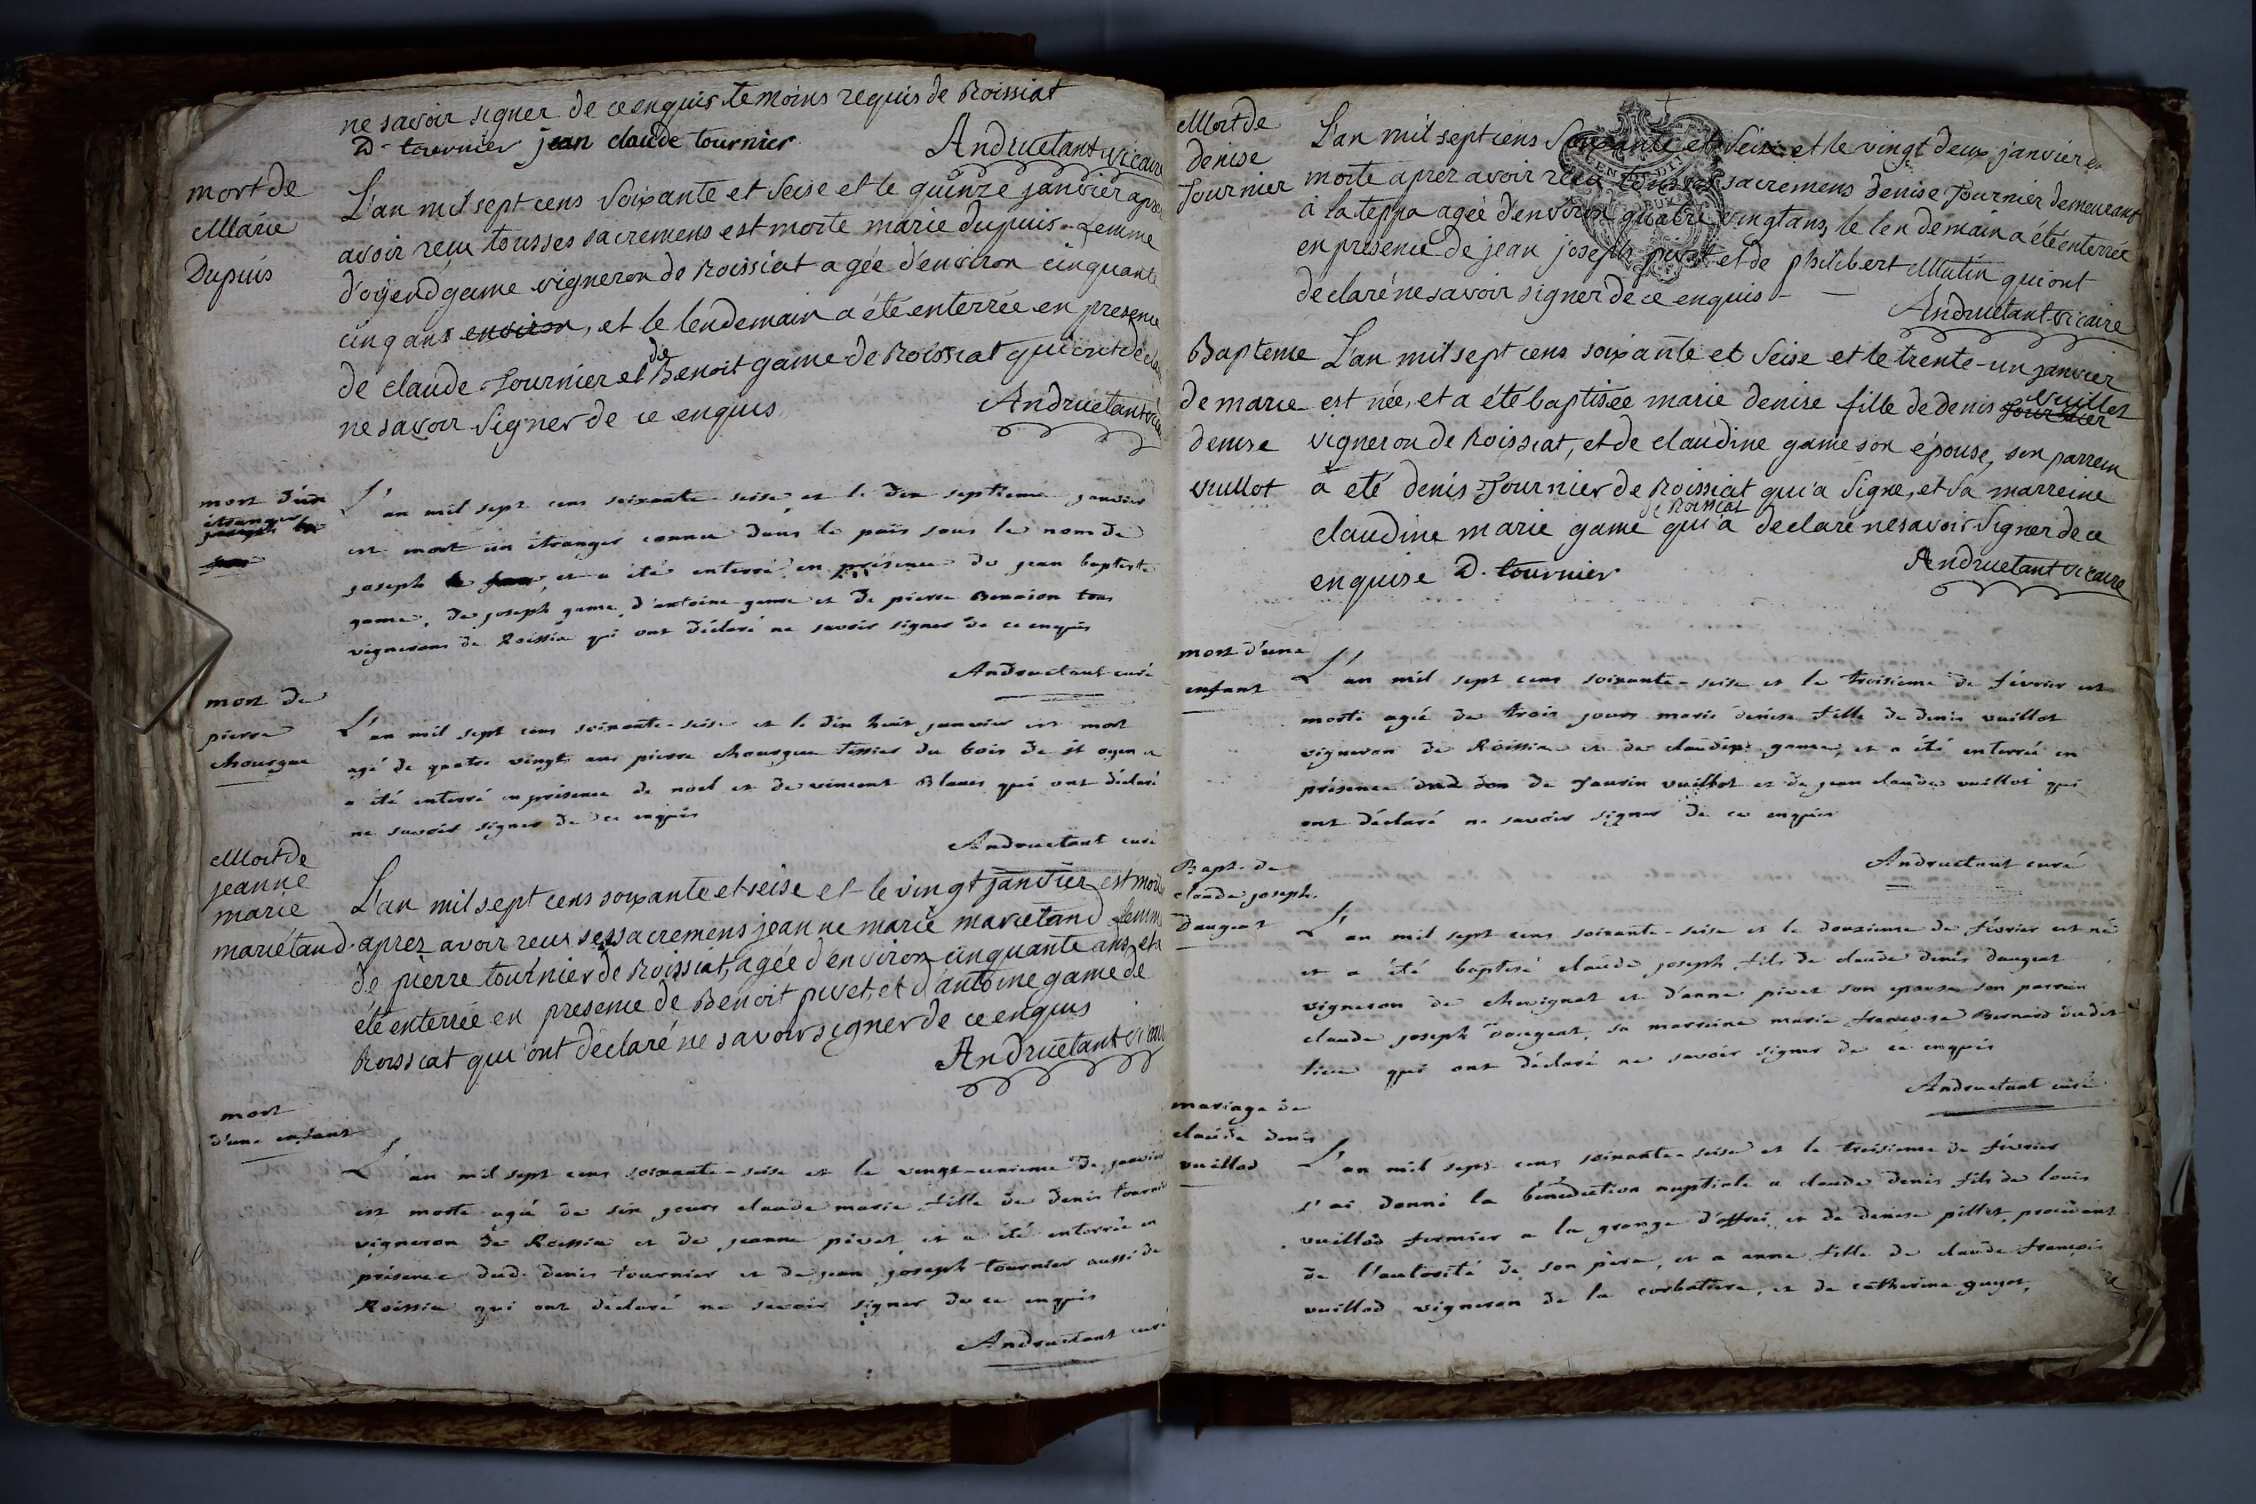 ne savoir signer de ce enquis temoins requis de Roissiat
D. tournier jean claude tournier
Andruetant vicaire
mort de
Marie
Dupuis
L'an mil sept cens soixante et seise et le quinze janvier aprez
avoir reçu tousses sacremens est morte marie dupuis femme
d'oyend game vigneron de Roissiat agée d'environ cinquante
cinq ans environ, et le lendemain a été enterrée en presence
de claude Tournier et de Benoit game de Roissiat qui ont déclaré
ne savoir signer de ce enquis
Andruetant vicaire
mort d'un
étranger
L'an mil sept cens soixante-seise et le dix septieme janvier
est mort un étranger connu dans le païs sous le nom de
joseph et a été enterré en présence de jean baptiste
game, de joseph game d'antoine game et de pierre Benoion tous
vignerons de Roissia qui ont déclaré ne savoir signer de ce enquis
Andruetant curé
mort de
pierre
chourgue
L'an mil sept cens soixante-seise et le dix huit janvier est mort
agé de quatre vingt ans pierre chourgue tessier du bois de st oyen et
a été enterré en présence de noel et de vincent Blanc qui ont déclaré
ne savoir signer de ce enquis
Andruetant curé
Mort de
jeanne
marie
mariétand
L'an mil sept cens soixante et seise et le vingt janvier est morte
aprez avoir reçu ses sacremens jeanne marie mariétand femme
de pierre tournier de Roissiat, agée d'environ cinquante ans, et a
été enterrée en presence de Benoit pivet, et d'antoine game de
Roissiat qui ont déclaré ne savoir signer de ce enquis
Andruetant vicaire
mort
d'une enfant
L'an mil sept cens soixante-seise et le vingt-unieme de janvier
est morte agée de six jours claude marie fille de denis tournier
vigneron de Roissia et de jeanne pivet et a été enterrée en
présence dud. denis tournier et de jean joseph tournier aussi de
Roissia qui ont déclaré ne savoir signer de ce enquis
Andruetant curé
Mort de
denise
Tournier
L'an mil sept cens soixante et seise et le vingt deux janvier est
morte aprez avoir reçu tous ses sacremens denise Tournier demeurant
a la teppa agée d'environ quatre vingt ans, le lendemain a été enterrée
en presence de jean joseph pivet et de philibert Mutin qui ont
declaré ne savoir signer de ce enquis
Andruetant vicaire
Bapteme
de marie
denise
vuillot
L'an mil sept cens soixante et seise et le trente-un janvier
est née, et a été baptisée marie denise fille de denis Tournier vuillot
vigneron de Roissiat, et de claudine game son épouse, son parrein
a été denis Tournier de Roissiat qui a signé, et sa marreine
claudine marie game de Roissiat qui a declaré ne savoir signer de ce
enquise D. tournier
Andruetant vicaire
mort d'une
enfant
L'an mil sept cens soixante-seise et le troisieme de février est
morte agée de trois jours marie denise fille de denis vuillot
vigneron de Roissia et de claudine game, et a été enterrée en
présence de vuillot et de jean claude vuillot qui
ont déclaré ne savoir signer de ce enquis
Andruetant curé
Bapt. de
claude joseph
daugeat
L'an mil sept cens soixante-seise et le douzieme de février est né
et a été baptisé claude joseph fils de claude denis daugeat
vigneron de chevignat et d'anne pivet son epouse son parrein
claude joseph daugeat, sa marreine marie françoise Bernard dudit
lieu qui ont déclaré ne savoir signer de ce enquis
Andruetant curé
mariage de
claude denis
vuillod
L'an mil sept cens soixante-seise et le treisieme de février
j'ai donné la bénédiction nuptiale a claude denis fils de louis
vuillod fermier a la grange d'offrei, et de denise pillet, procédant
de l'autorité de son père, et a anne fille de claude françois
vuillod vigneron de la corbatiere, et de catherine guyot,